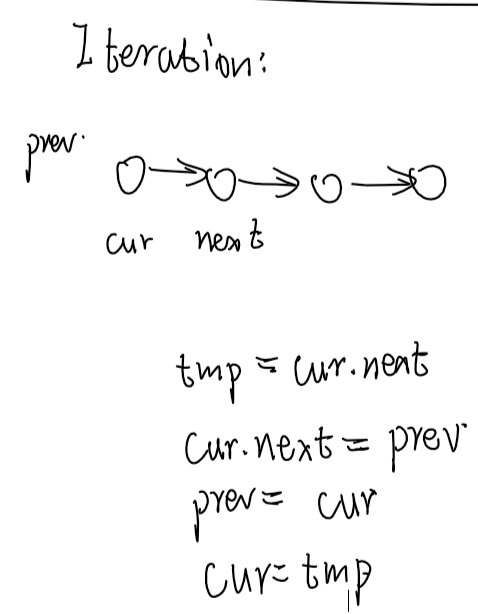 Iteration:
prev.
cur next
tmp = cur.next
cur.next = prev
prev = cur
cur = tmp